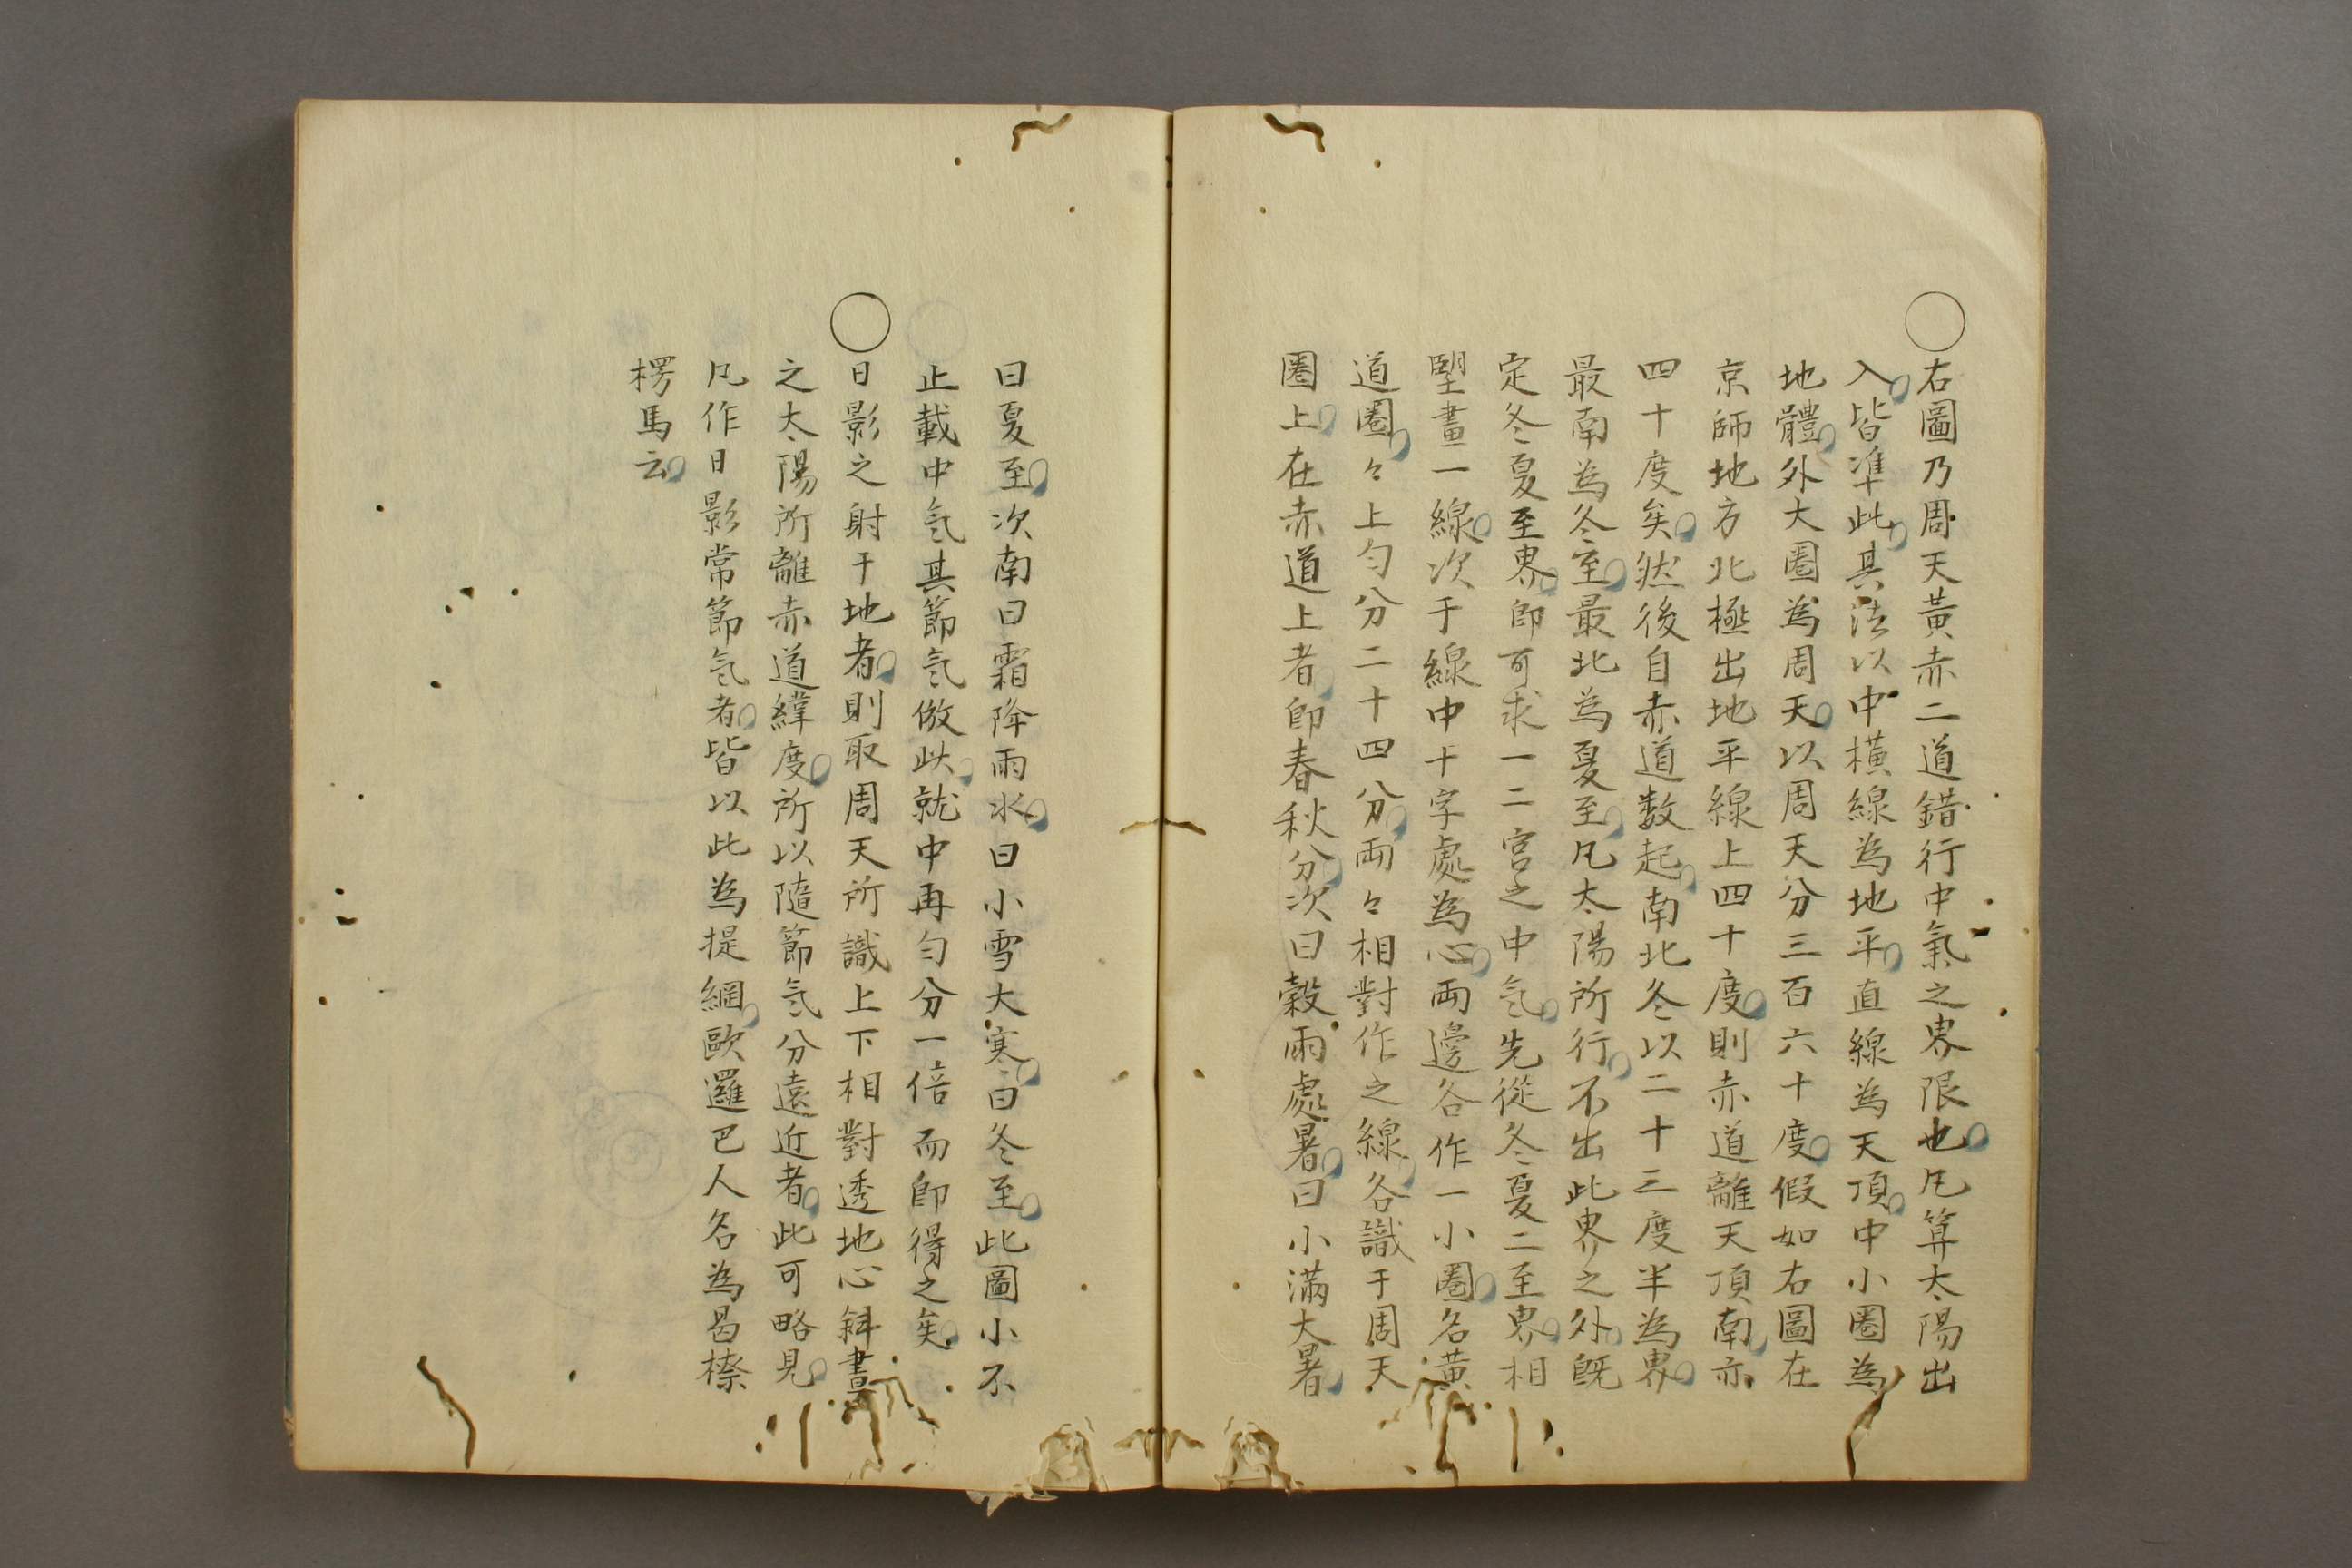 ○右圖乃周天黃赤二道錯行中氣之界限也凡算太陽出
入皆準此其法以中橫線為地平直線為天頂中小圈為
地體外大圈為周天以周天分三百六十度假如右圖在
京師地方北極出地平線上四十度則赤道離天頂南亦
四十度矣然後自赤道数起南北各以二十三度半為界
最南為冬至最北為夏至凡太陽所行不出此界之外既
定冬夏至界即可求一二宮之中気先從冬夏二至界相
朢畫一線次于線中十字處為心兩邊各作一小圈名黃
道圈々上勻分二十四分兩々相對作之線各識于周天
圈上在赤道上者即春秋分次曰穀雨處暑曰小滿大暑
曰夏至次南曰霜降雨水曰小雪大寒曰冬至此圖小不
止載中気其節気倣此就中再勻分一倍而即得之矣
○日影之射于地者則取周天所識上下相對透地心斜畫
之太陽所離赤道緯度所以隨節気分遠近者此可略見
凡作日影常節気者皆以此為提綱歐邏巴人名為曷㮏
楞馬云